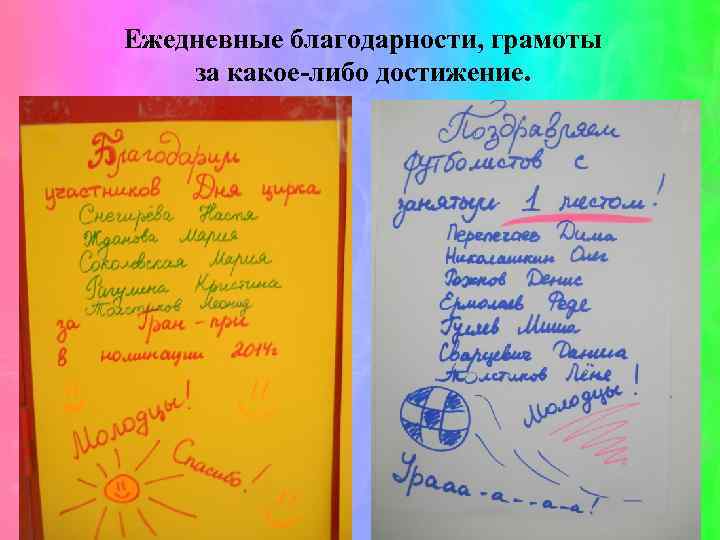 Ежедневные благодарности, грамоты
за какое-либо достижение.
Благодарим
участников Дня цирка
Снегирёва Настя
Жданова Мария
Соколовская Мария
Рагулина Кристина
Толстиков Леонид
за Гран-при
в номинации 2014г
Молодцы!
Спасибо!
Поздравляем
футболистов с
занятым 1 местом!
Перепечаев Дима
Николашкин Олег
Рожков Денис
Ермолаев Феде
Гуляев Миша
Сварцевич Данила
Толстиков Лёне
Молодцы!
Урааа-а--а-а!